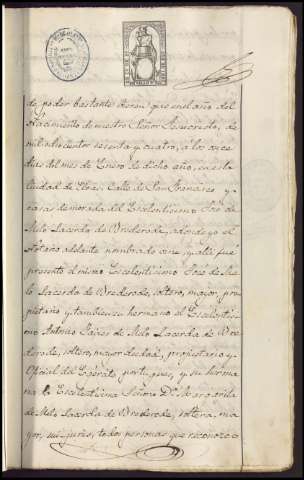 de poder bastante virem que en el año del
Nacimiento de nuestro Señor Jesucristo, de
mil ochocientos setenta y cuatro, a los once
dias del mes de Enero de dicho año, en esta
Ciudad de Elvas Calle de San Francisco y
casas de morada del Escelentisimo José de
Melo Lacerda de Brederode, adonde yo el
Notario adelante nombrado vine, y alli fué
presente el mismo Escelentisimo José de Me
lo Lacerda de Brederode, soltero, mayor, pro
pietario y tambien su hermano el Escelentisi
mo Antonio Jaices de Melo Lacerda de Bre
derode, soltero, mayor de edad, propietario y
Oficial del Egército portugues, y su herma
na la Escelentisima Señora Dª Margarida
de Melo Lacerda de Brederode, soltera, ma
yor, sui juris, todos personas que reconozco